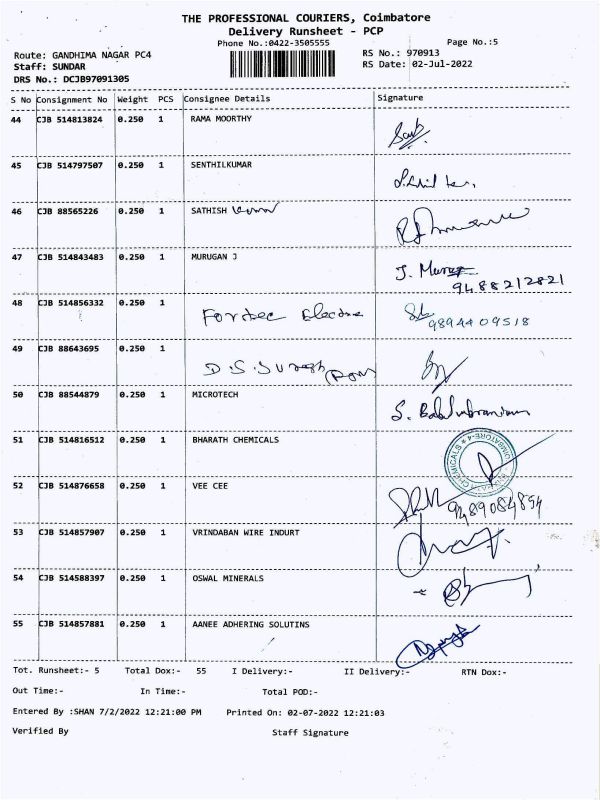 THE PROFESSIONAL COURIERS, Coimbatore
Delivery Runsheet - PCP
Phone No.:0422-3505555
Page No.:5
Route: GANDHIMA NAGAR PC4
RS No.: 970913
Staff: SUNDAR
RS Date: 02-Jul-2022
DRS No.: DCJB97091305
S No Consignment No Weight PCS Consignee Details Signature
44 CJB 514813824 0.250 1 RAMA MOORTHY
45 CJB 514797507 0.250 1 SENTHILKUMAR
46 CJB 88565226 0.250 1 SATHISH
47 CJB 514843483 0.250 1 MURUGAN J J. Murug
9488212821
48 CJB 514856332 0.250 1
9894409518
49 CJB 88643695 0.250 1
D.S.
50 CJB 88544879 0.250 1 MICROTECH S. Balasubramaniam
51 CJB 514816512 0.250 1 BHARATH CHEMICALS
CHEMICALS ★ COIMBATORE-4
52 CJB 514876658 0.250 1 VEE CEE 9489084894
53 CJB 514857907 0.250 1 VRINDABAN WIRE INDURT
54 CJB 514588397 0.250 1 OSWAL MINERALS
55 CJB 514857881 0.250 1 AANEE ADHERING SOLUTINS
Tot. Runsheet:- 5 Total Dox:- 55 I Delivery:- II Delivery:- RTN Dox:-
Out Time:- In Time:- Total POD:-
Entered By :SHAN 7/2/2022 12:21:00 PM Printed On: 02-07-2022 12:21:03
Verified By Staff Signature